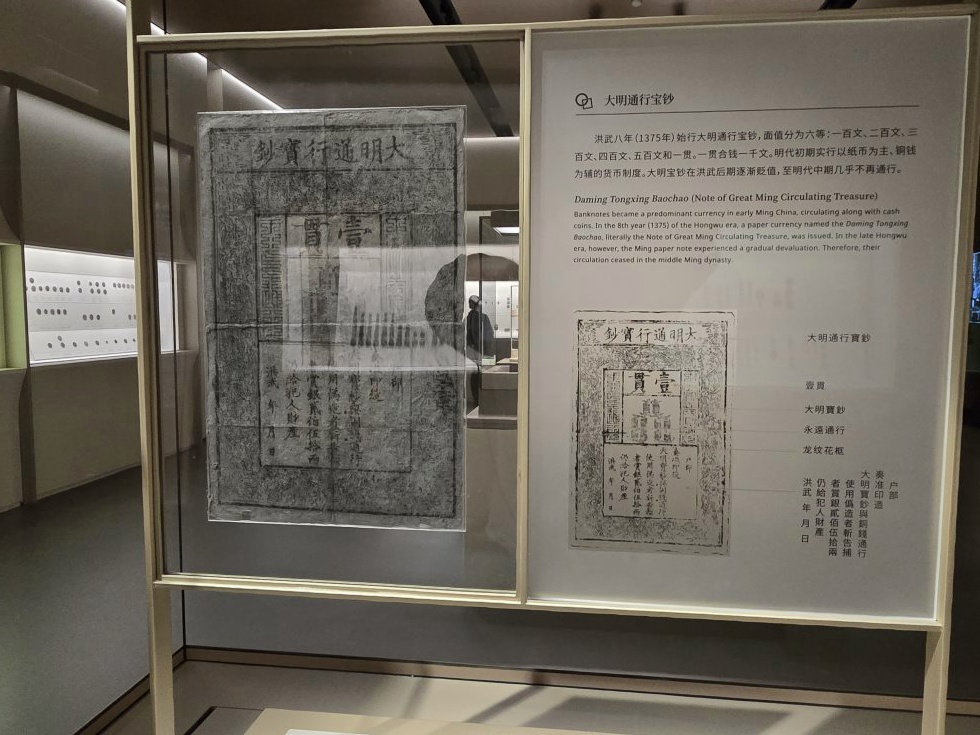 大明通行寶鈔
壹貫
大明通行宝钞
洪武八年（1375年）始行大明通行宝钞，面值分为六等：一百文、二百文、三
百文、四百文、五百文和一贯。一贯合钱一千文。明代初期实行以纸币为主、铜钱
为辅的货币制度。大明宝钞在洪武后期逐渐贬值，至明代中期几乎不再通行。
Daming Tongxing Baochao (Note of Great Ming Circulating Treasure)
Banknotes became a predominant currency in early Ming China, circulating along with cash
coins. In the 8th year (1375) of the Hongwu era, a paper currency named the Daming Tongxing
Baochao, literally the Note of Great Ming Circulating Treasure, was issued. In the late Hongwu
era, however, the Ming paper note experienced a gradual devaluation. Therefore, their
circulation ceased in the middle Ming dynasty.
大明通行寶鈔
壹貫
大明通行寶鈔
壹貫
大明寶鈔
永遠通行
龙纹花框
户部
奏准印造
大明寶鈔與銅錢通行
使用僞造者斬告捕
者賞銀貳佰伍拾兩
仍給犯人財產
洪武 年 月 日